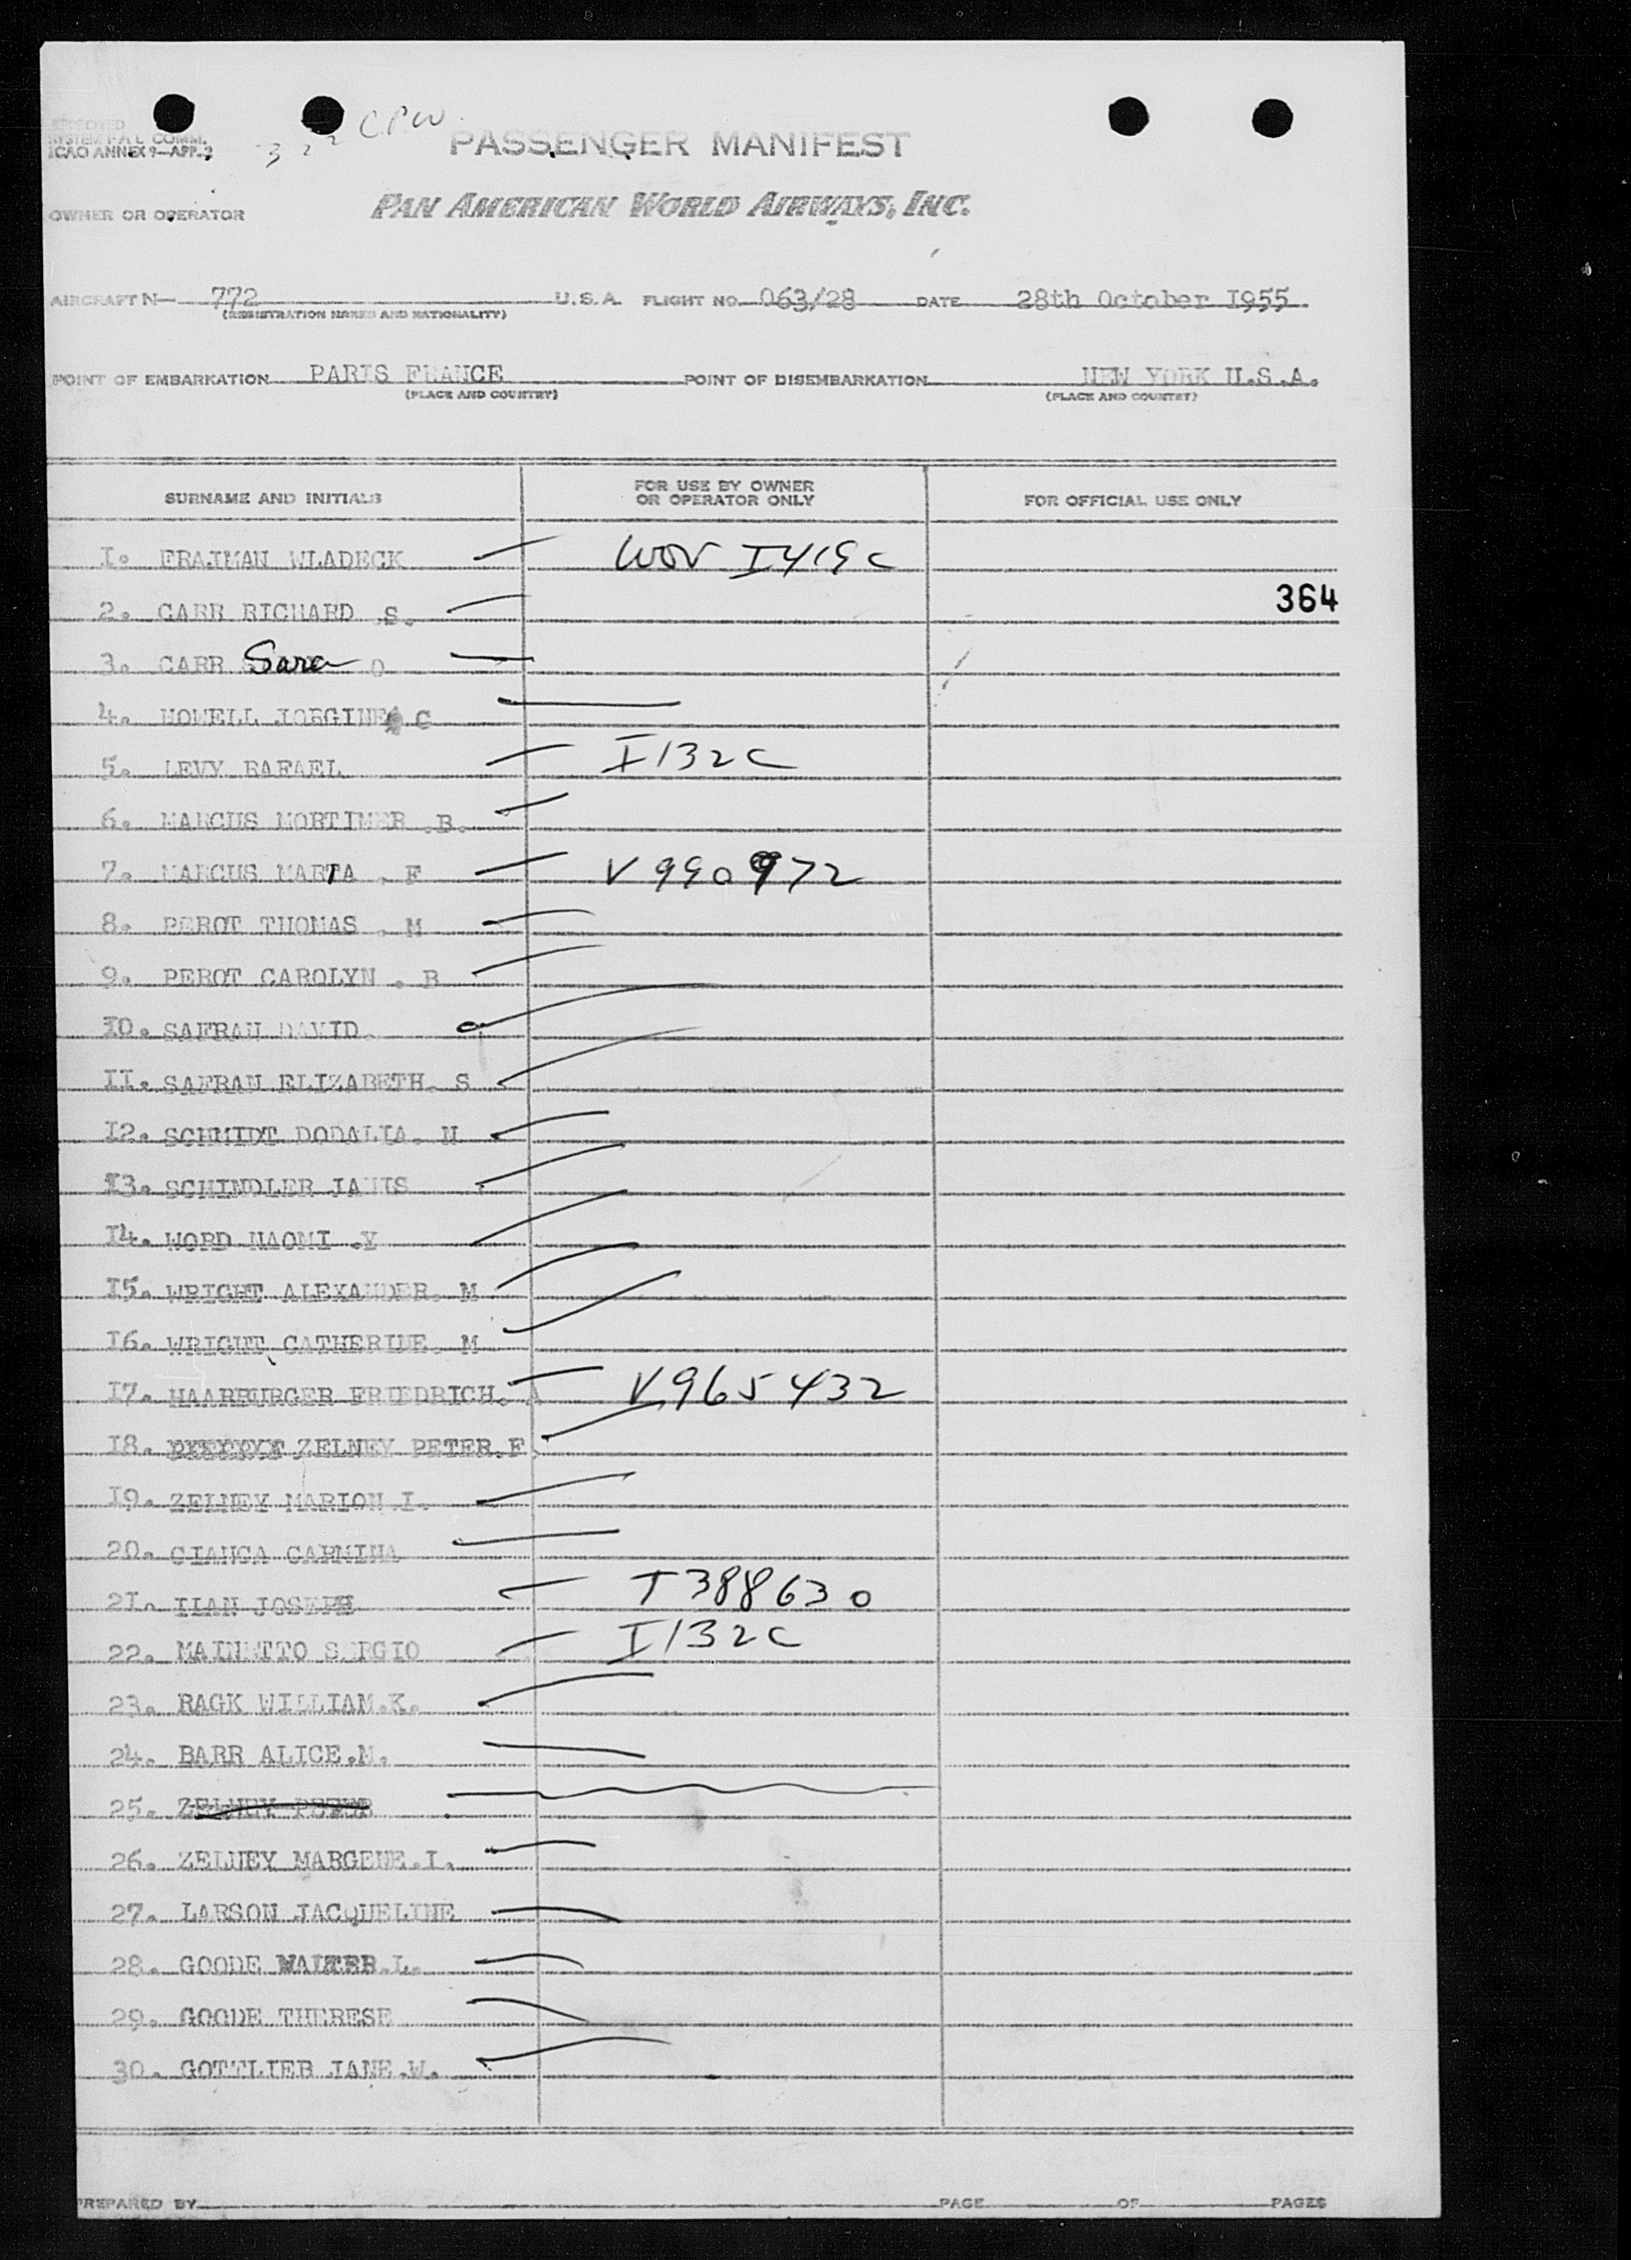 APPROVED
SYSTEM F.A.L COMM.
ICAO ANNEX 9—APP. 2
322 CPW
PASSENGER MANIFEST
OWNER OR OPERATOR PAN AMERICAN WORLD AIRWAYS, INC.
AIRCRAFT N— 772 U.S.A. FLIGHT NO. 063/28 DATE 28th October I955
(REGISTRATION MARKS AND NATIONALITY)
POINT OF EMBARKATION PARIS FRANCE POINT OF DISEMBARKATION NEW YORK U.S.A.
(PLACE AND COUNTRY) (PLACE AND COUNTRY)
SURNAME AND INITIALS FOR USE BY OWNER OR OPERATOR ONLY FOR OFFICIAL USE ONLY
I. FRAJMAN WLADECK WOV I419C
364
2. CARR RICHARD .S.
3. CARR Sara O
4. HOWELL JORGINE C
5. LEVY RAFAEL I132C
6. MARCUS MORTIMER .B.
7. MARCUS MARIA . F V990972
8. PEROT THOMAS . M
9. PEROT CAROLYN . B
I0. SAFRAN DAVID.
II. SAFRAN ELIZABETH. S
I2. SCHMIDT DODALIA. H
I3. SCHINDLER JANIS
I4. WORD NAOMI .V
I5. WRIGHT ALEXANDER. M
I6. WRIGHT CATHERINE. M
I7. HAARBURGER FRIEDRICH. A V965432
I8. ZELNEY PETER.F.
I9. ZELNEY MARION.I.
20. CIANCA CARMINA
2I. ILAN JOSEPH T388630
22. MAINETTO SERGIO I132C
23. RAGK WILLIAM.K.
24. BARR ALICE.N.
25. ZELNEY PETER
26. ZELNEY MARGENE.I.
27. LARSON JACQUELINE
28. GOODE WALTER.L.
29. GOODE THERESE
30. GOTTLIEB JANE.W.
PREPARED BY PAGE OF PAGES